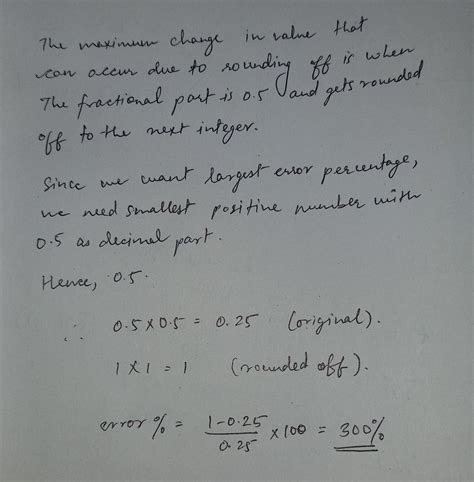 The maximum change in value that
can occur due to rounding off is when
The fractional part is 0.5 and gets rounded
off to the next integer.
Since we want largest error percentage,
we need smallest positive number with
0.5 as decimal part.
Hence, 0.5.
∴ 0.5 X 0.5 = 0.25 (original).
1 X 1 = 1 (rounded off).
error % = (1-0.25)/0.25 x 100 = 300%